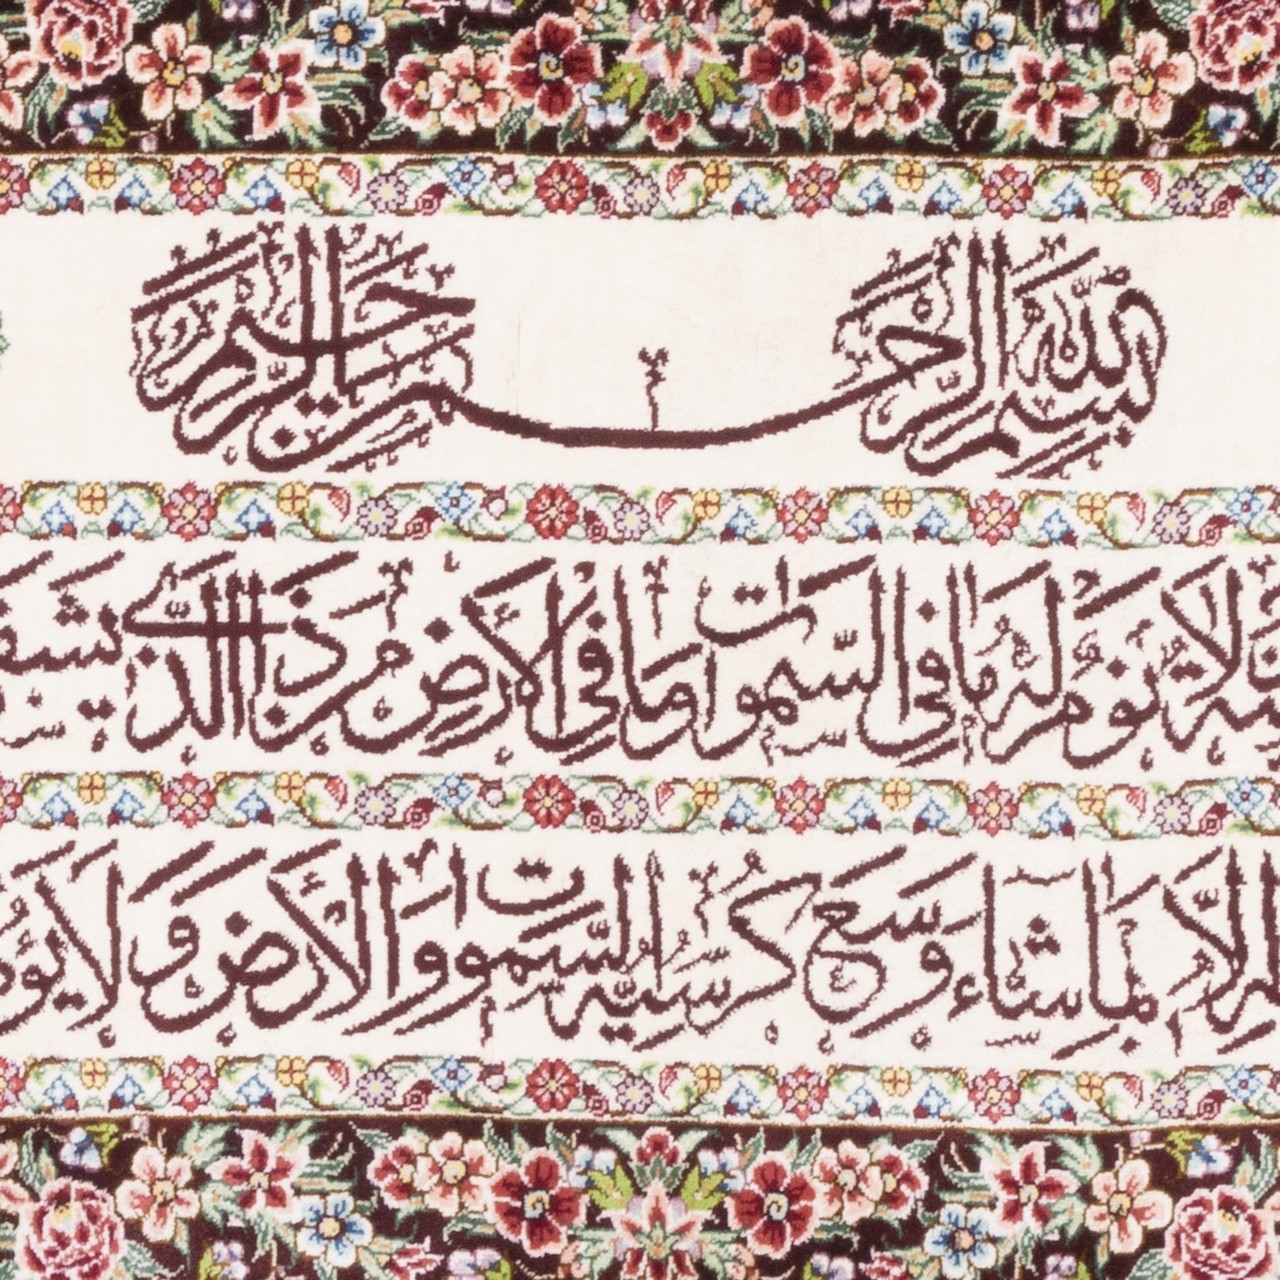 بسم الله الرحمن الرحيم
لا نوم له ما في السموات وما في الأرض من ذا الذي يشف
إلا بما شاء وسع كرسيه السموات والأرض ولا يؤ